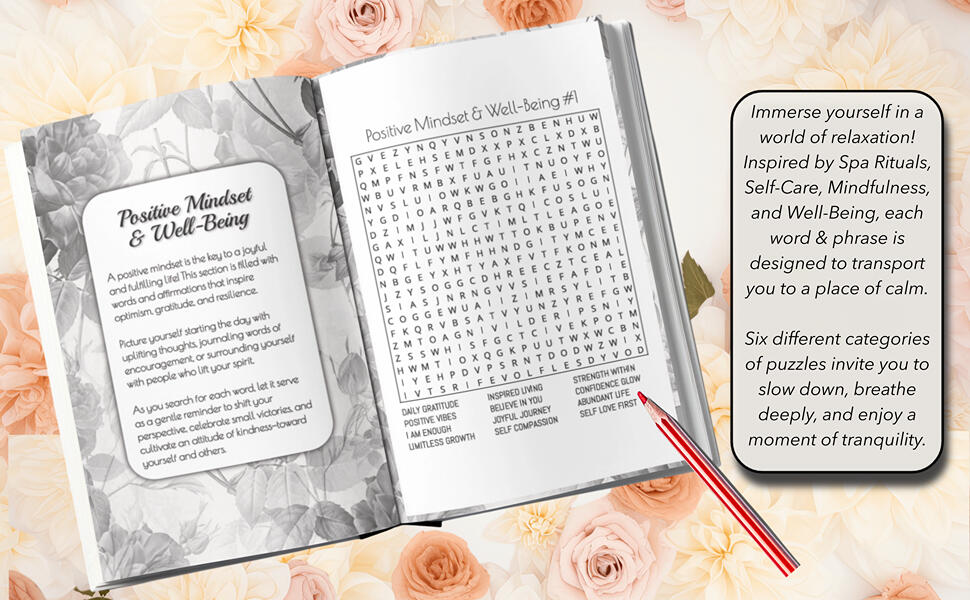 Positive Mindset
& Well-Being
A positive mindset is the key to a joyful
and fulfilling life! This section is filled with
words and affirmations that inspire
optimism, gratitude, and resilience.
Picture yourself starting the day with
uplifting thoughts, journaling words of
encouragement, or surrounding yourself
with people who lift your spirit.
As you search for each word, let it serve
as a gentle reminder to shift your
perspective, celebrate small victories, and
cultivate an attitude of kindness–toward
yourself and others.
Positive Mindset & Well-Being #1
G V E Z Y N Q Y V N S O N Z B E N H U W
P X E L E H S E M D X X P X C L X D X B
Q M P F N S F W T F G F H X C Z N T W U
W B U V R M B X F U A U I T N U O Y F O
N V S L U I O W K W G O I I A E I W H Y
Y G D I O A R Q B E B G H K F U S O G N
D Z I M J J W F G V K T Q I C O S L U I
G A X I L J N L C T I M L T L E A G O E
Q W I T U W W H H W T T O K B U P E N V
D Q F L F Y M F H H N D G I T Y M C E E
N B G E Y X H T Y A X F V T F K O N M I
J Z Y S O G G C D H R E E C Z T C E A L
DAILY GRATITUDE
POSITIVE VIBES
I AM ENOUGH
LIMITLESS GROWTH
INSPIRED LIVING
BELIEVE IN YOU
JOYFUL JOURNEY
SELF COMPASSION
STRENGTH WITHIN
CONFIDENCE GLOW
ABUNDANT LIFE
SELF LOVE FIRST
Immerse yourself in a
world of relaxation!
Inspired by Spa Rituals,
Self-Care, Mindfulness,
and Well-Being, each
word & phrase is
designed to transport
you to a place of calm.
Six different categories
of puzzles invite you to
slow down, breathe
deeply, and enjoy a
moment of tranquility.